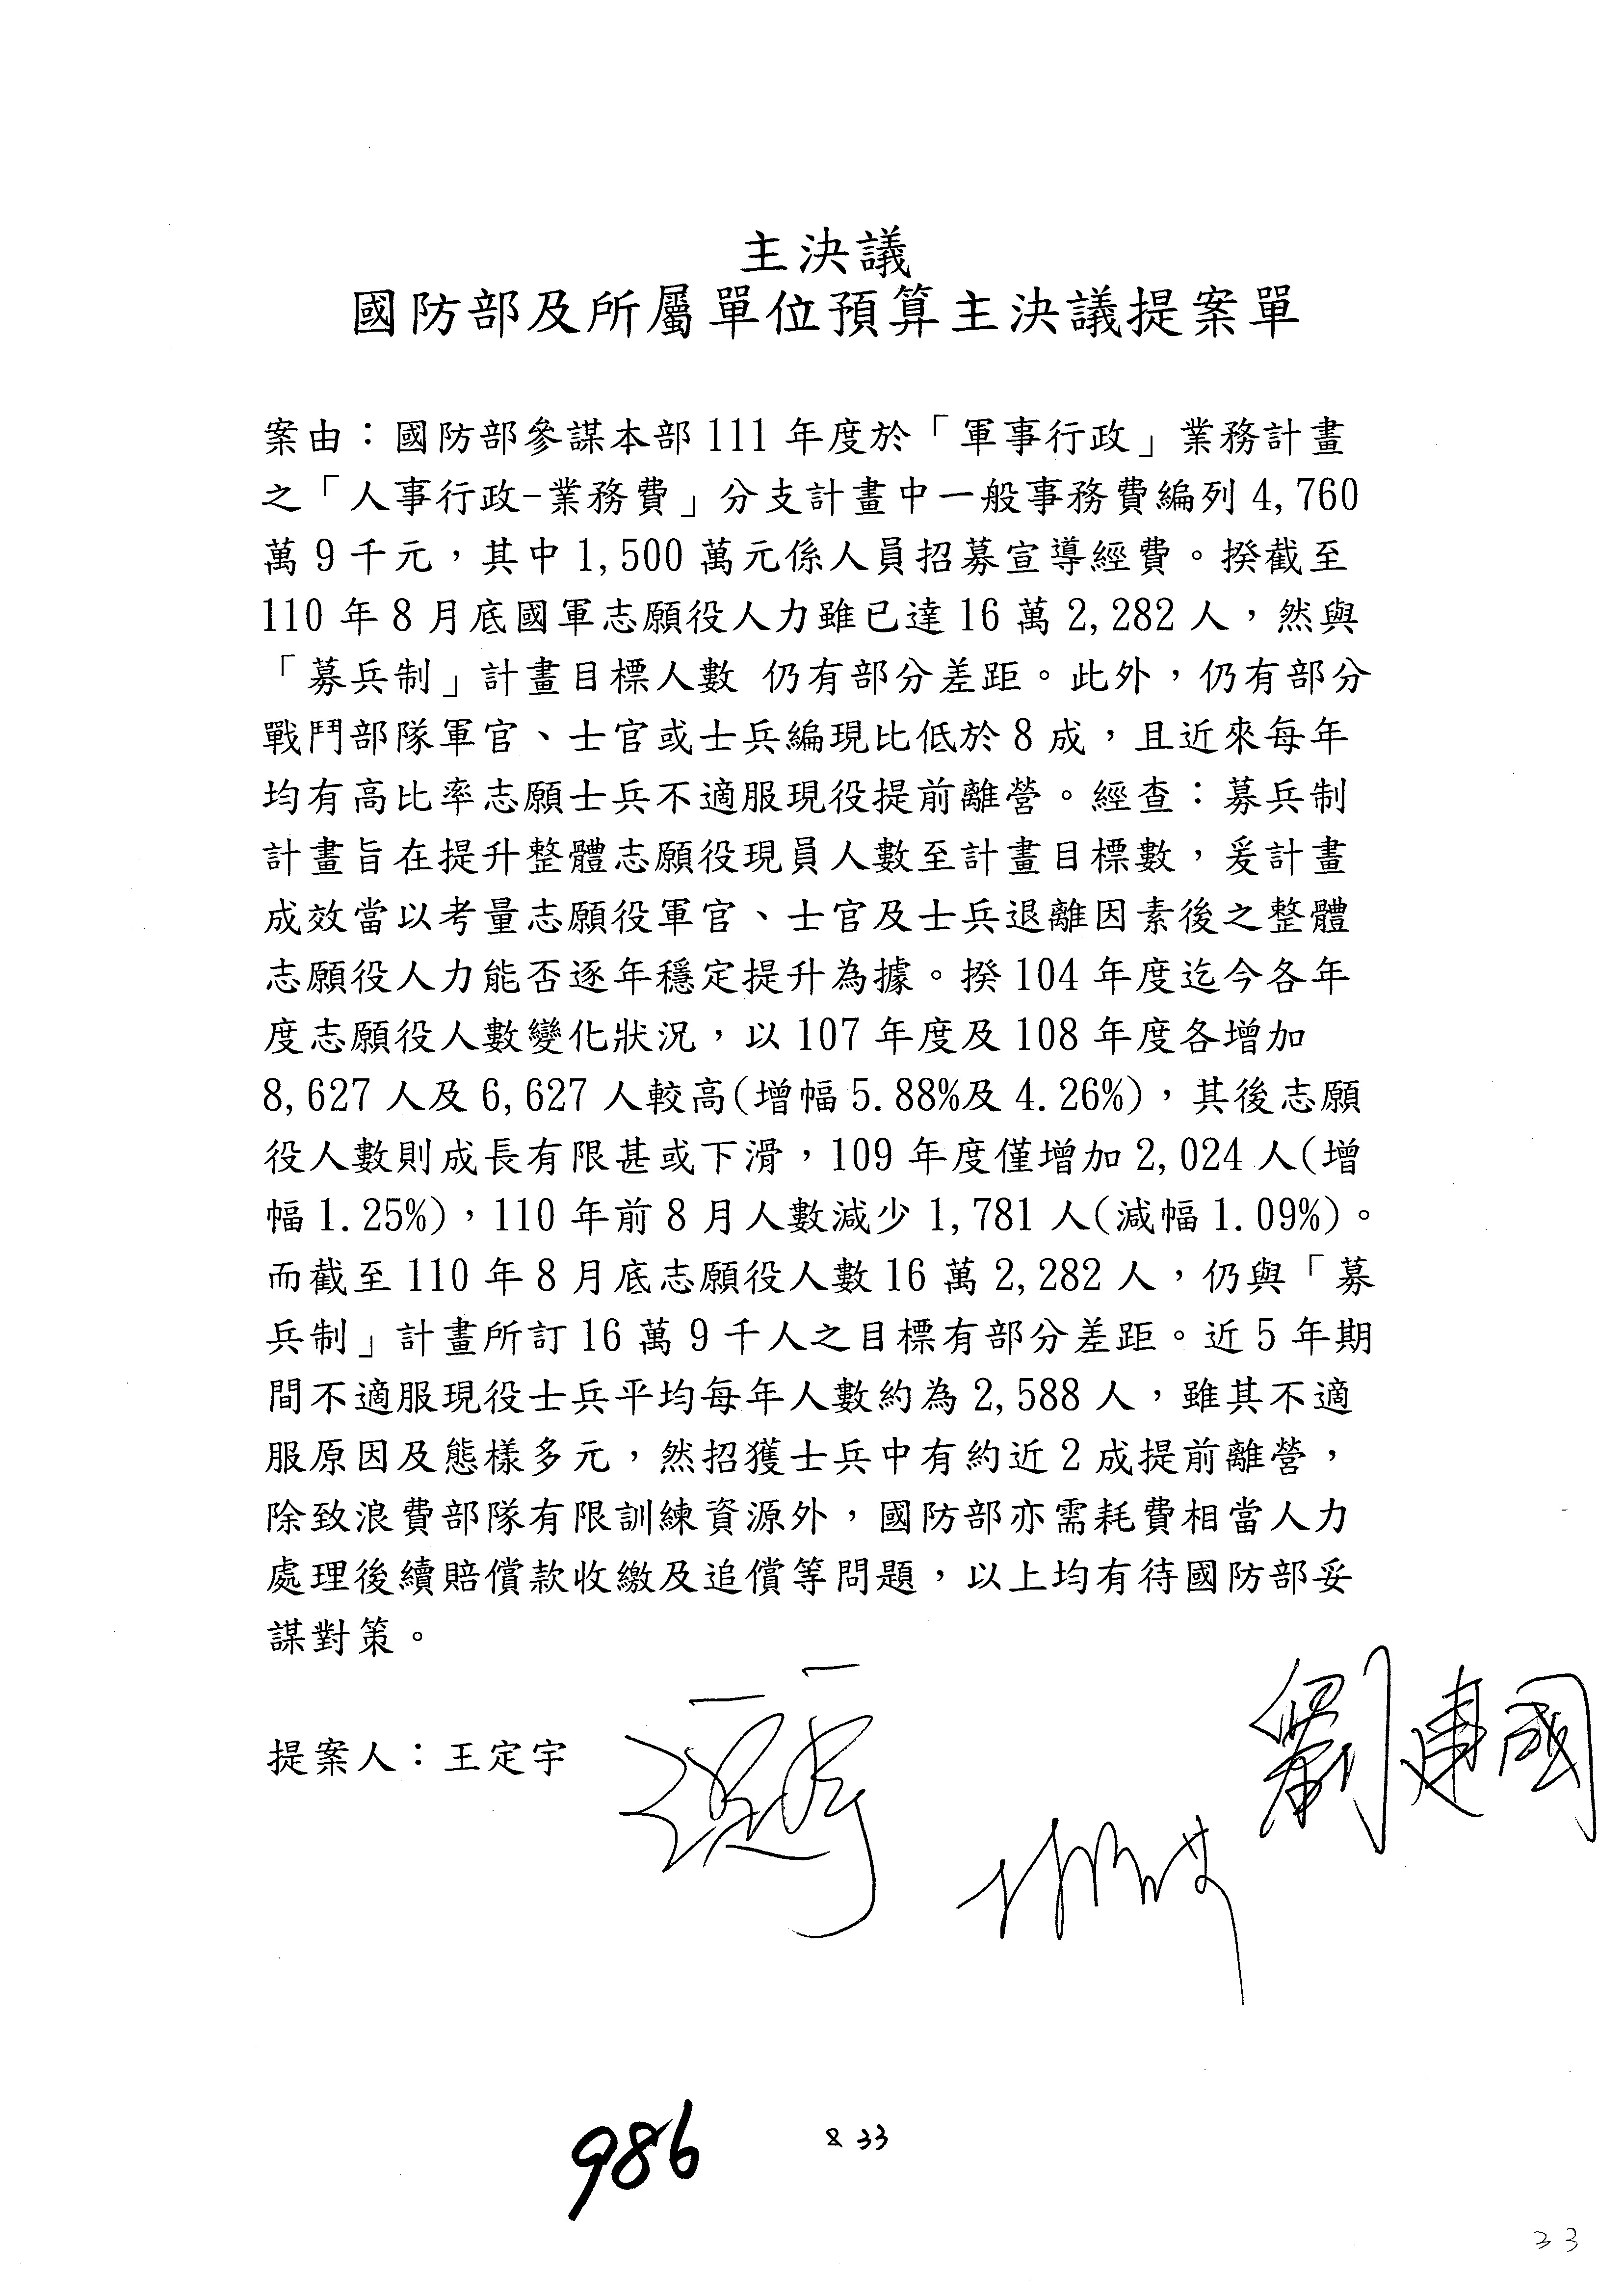 主決議
國防部及所屬單位預算主決議提案單
案由：國防部參謀本部 111 年度於「軍事行政」業務計畫
之「人事行政-業務費」分支計畫中一般事務費編列 4,760
萬 9 千元，其中 1,500 萬元係人員招募宣導經費。揆截至
110 年 8 月底國軍志願役人力雖已達 16 萬 2,282 人，然與
「募兵制」計畫目標人數 仍有部分差距。此外，仍有部分
戰鬥部隊軍官、士官或士兵編現比低於 8 成，且近來每年
均有高比率志願士兵不適服現役提前離營。經查：募兵制
計畫旨在提升整體志願役現員人數至計畫目標數，爰計畫
成效當以考量志願役軍官、士官及士兵退離因素後之整體
志願役人力能否逐年穩定提升為據。揆 104 年度迄今各年
度志願役人數變化狀況，以 107 年度及 108 年度各增加
8,627 人及 6,627 人較高(增幅 5.88%及 4.26%)，其後志願
役人數則成長有限甚或下滑，109 年度僅增加 2,024 人(增
幅 1.25%)，110 年前 8 月人數減少 1,781 人(減幅 1.09%)。
而截至 110 年 8 月底志願役人數 16 萬 2,282 人，仍與「募
兵制」計畫所訂 16 萬 9 千人之目標有部分差距。近 5 年期
間不適服現役士兵平均每年人數約為 2,588 人，雖其不適
服原因及態樣多元，然招獲士兵中有約近 2 成提前離營，
除致浪費部隊有限訓練資源外，國防部亦需耗費相當人力
處理後續賠償款收繳及追償等問題，以上均有待國防部妥
謀對策。
劉建國
提案人：王定宇
986
833
33